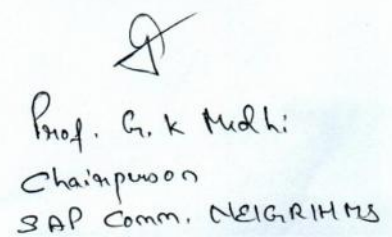 Prof. G. K Medhi
Chairperson
SAP Comm. NEIGRIHMS